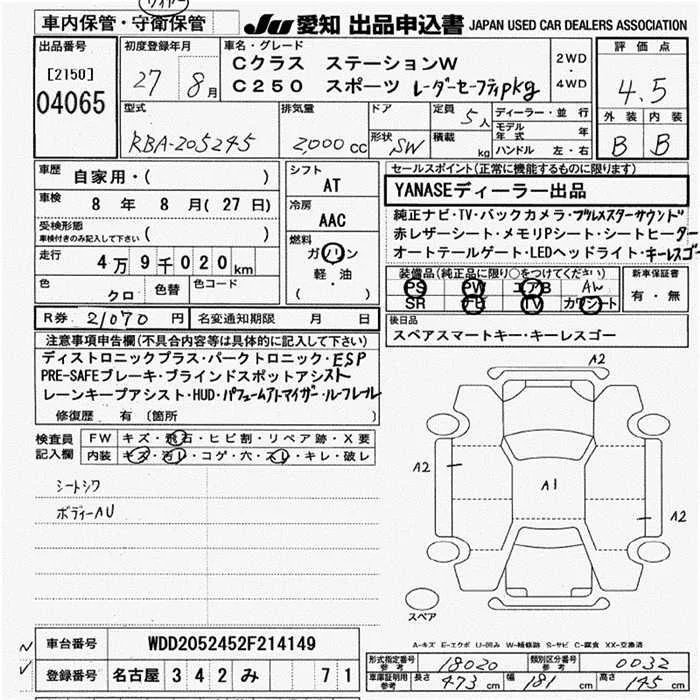 車内保管・守衛保管
JU 愛知 出品申込書 JAPAN USED CAR DEALERS ASSOCIATION
出品番号
[2150]
04065
初度登録年月
27 8月
車名・グレード
Cクラス ステーションW
C250 スポーツ レーダーセーフティpkg
2WD
・
4WD
評価点
4.5
外装 内装
B B
型式
RBA-205245
排気量
2,000cc
ドア
形状 SW
定員 5人
積載 kg
ディーラー・並行
モデル年式 年
ハンドル 左・右
車歴
自家用・( )
車検
8年 8月(27日)
受検形態
車検付きのみ記入して下さい ( )
走行
4万9千020km
色
クロ
色替
色コード
シフト
AT
冷房
AAC
燃料
ガソリン
軽・油
( )
R券 21070円
名変通知期限 月 日
セールスポイント(正常に機能するものに限ります)
YANASEディーラー出品
純正ナビ・TV・バックカメラ・ブルメスターサウンド
赤レザーシート・メモリPシート・シートヒーター
オートテールゲート・LEDヘッドライト・キーレスゴー
装備品(純正品に限り○をつけてください)
PS PW エアB AW
SR ナビ TV カワシート
新車保証書
有・無
後日品
スペアスマートキー・キーレスゴー
注意事項申告欄(不具合内容等は具体的に記入して下さい)
ディストロニックプラス・パークトロニック・ESP
PRE-SAFEブレーキ・ブラインドスポットアシスト
レーンキープアシスト・HUD・パフュームアトマイザー・ルーフレール
修復歴 有 (箇所 )
検査員記入欄
FW キズ・飛石・ヒビ割・リペア跡・X要
内装 キズ・汚レ・コゲ・穴・スレ・キレ・破レ
シートシワ
ボディーAU
A2
A2
A1
A2
スペア
A-キズ E-エクボ U-凹み W-補修跡 S-サビ C-腐食 XX-交換済
車台番号 WDD2052452F214149
登録番号 名古屋 342 み 71
形式指定番号 参考 18020
類別区分番号 参考 0032
車庫証明用 参考 長さ 473cm 幅 181cm 高さ 145cm